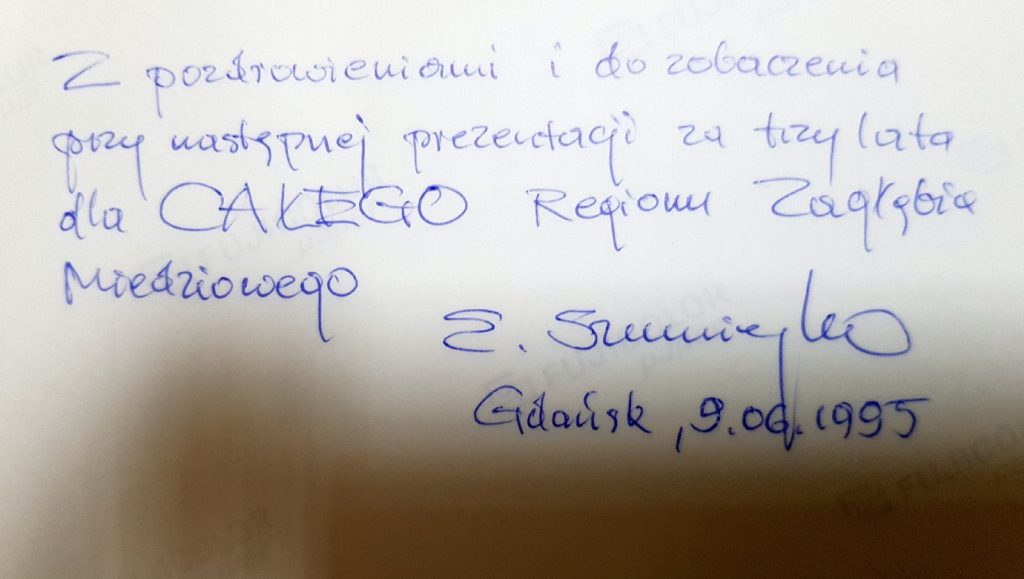 Z pozdrowieniami i do zobaczenia
przy następnej prezentacji za trzy lata
dla CAŁEGO Regionu Zagłębia
Miedziowego
E.
Gdańsk, 9.06.1995
FUJICOLOR